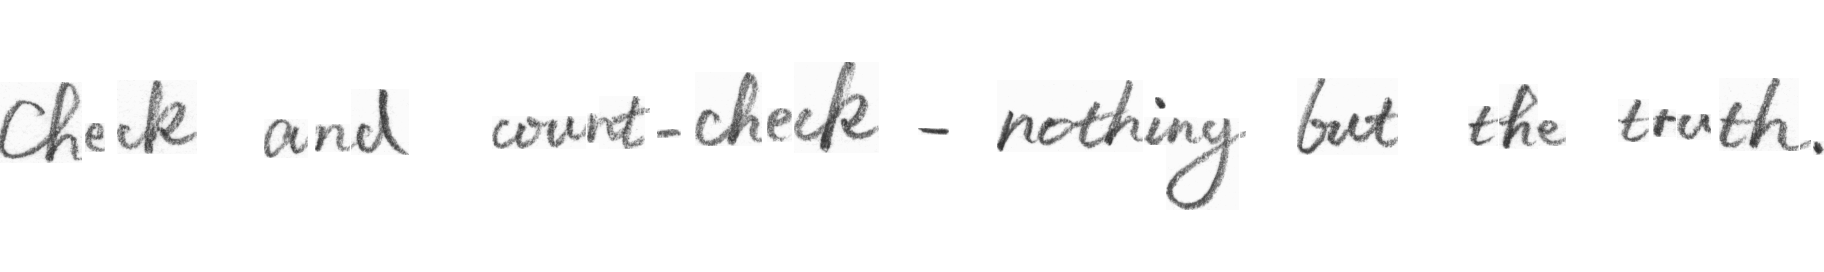 Check and count-check - nothing but the truth.